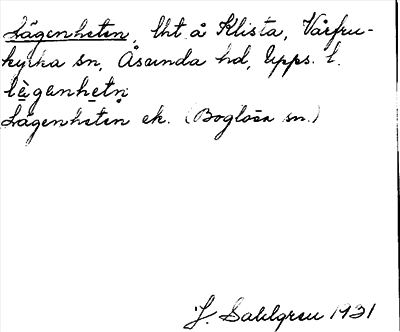 Lägenheten, lht å Klista, Vårfru-
kyrka sn, Åsunda hd, Upps. l.
lägenhetn̥
Lägenheten ek. (Boglösa sn.)
J. Sahlgren 1931